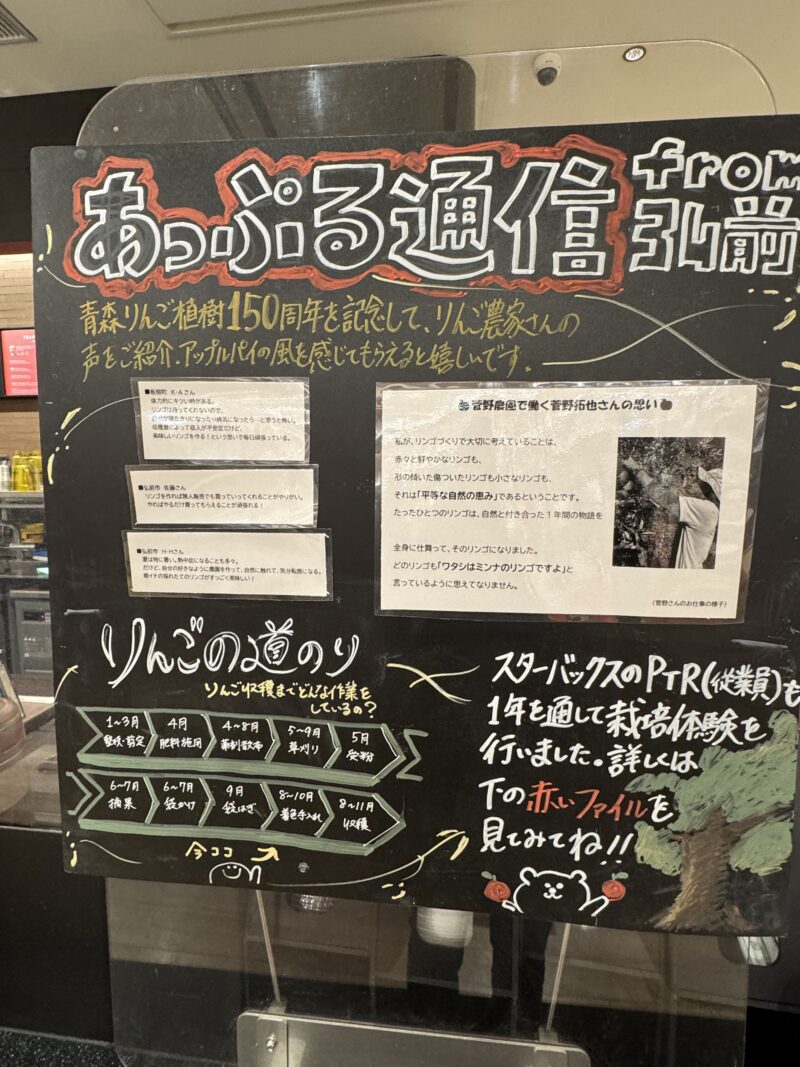 あっぷる通信
from
弘前
青森りんご植樹150周年を記念して、りんご農家さんの
声をご紹介。アップルパイの風を感じてもらえると嬉しいです。
■板柳町 K・Aさん
体力的にキツい時がある。
リンゴは待ってくれないので、
自分が寝たきりになったり病気になったら…と思うと怖い。
収穫量によって収入が不安定だけど、
美味しいリンゴを作る！という思いで毎日頑張っている。
■弘前市 佐藤さん
リンゴを作れば無人販売でも買っていってくれることがやりがい。
やればやるだけ買ってもらえることが頑張れる！
■弘前市 H・Hさん
夏は特に暑い。熱中症になることも多々。
だけど、自分の好きなように農園を作って、自然に触れて、気分転換になる。
朝イチの採れたてのリンゴがすっごく美味しい！
菅野農園で働く菅野拓也さんの思い
私が、リンゴづくりで大切に考えていることは、
赤々と鮮やかなリンゴも、
形の傾いた傷ついたリンゴも小さなリンゴも、
それは「平等な自然の恵み」であるということです。
たったひとつのリンゴは、自然と付き合った１年間の物語を
全身に仕舞って、そのリンゴになりました。
どのリンゴも「ワタシはミンナのリンゴですよ」と
言っているように思えてなりません。
（菅野さんのお仕事の様子）
りんごの道のり
りんご収穫までどんな作業を
しているの？
1〜3月 整枝・剪定
4月 肥料施用
4〜8月 薬剤散布
5〜9月 草刈り
5月 受粉
6〜7月 摘果
6〜7月 袋かけ
9月 袋はぎ
8〜10月 着色手入れ
8〜11月 収穫
今ココ
スターバックスのPTR(従業員)も
1年を通して栽培体験を
行いました。詳しくは
下の赤いファイルを
見てみてね!!